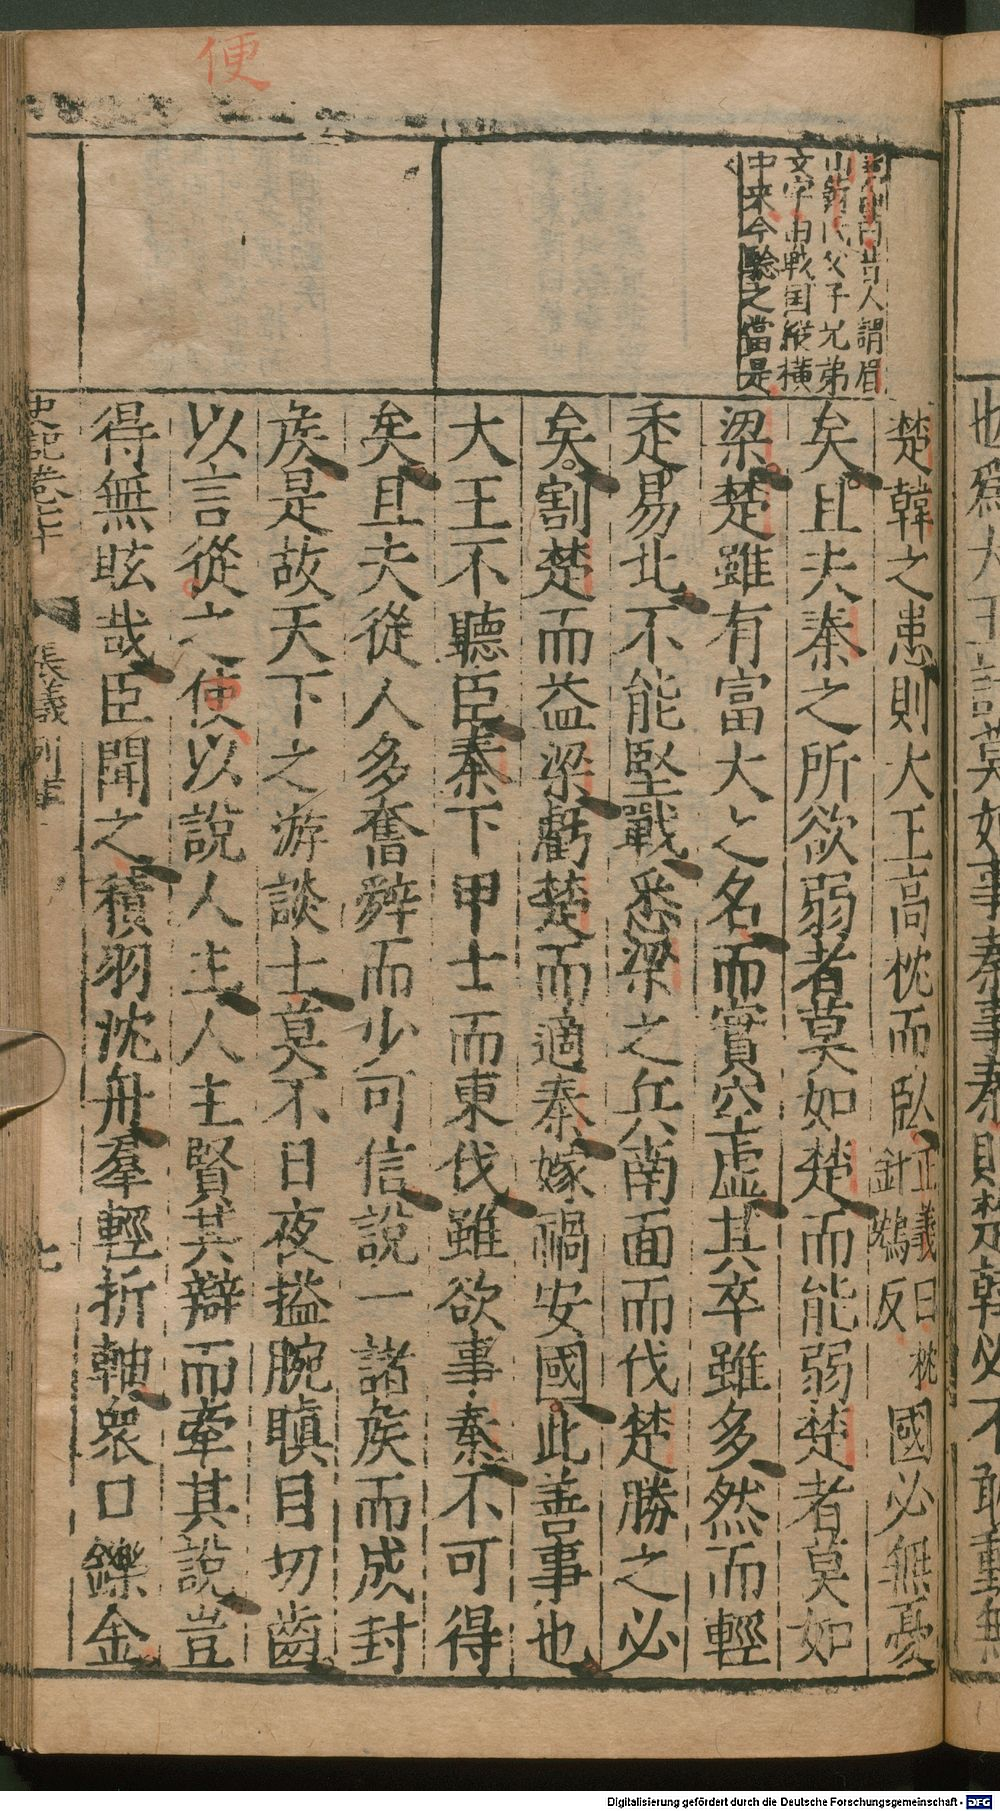 便
昔人謂眉
山蘇氏父子兄弟
文字由戰国縱橫
中来今驗之當是
楚韓之患則大王高枕而臥正義曰枕針鴆反國必無憂
矣且夫秦之所欲弱者莫如楚而能弱楚者莫如
梁楚雖有富大之名而實空虛其卒雖多然而輕
走易北不能堅戰悉梁之兵南面而伐楚勝之必
矣割楚而益梁虧楚而適秦嫁禍安國此善事也
大王不聽臣秦下甲士而東伐雖欲事秦不可得
矣且夫從人多奮辭而少可信說一諸矦而成封
矦是故天下之游談士莫不日夜搤腕瞋目切齒
以言從之便以說人主人主賢其辯而牽其說豈
得無眩哉臣聞之積羽沈舟羣輕折軸衆口鑠金
史記卷七十
張儀列傳
七
Digitalisierung gefördert durch die Deutsche Forschungsgemeinschaft - DFG